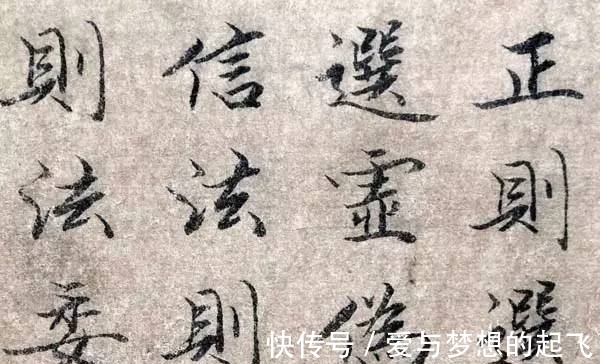 正則選
選虛偽
信法則
則法委
快传号/爱与梦想的起飞